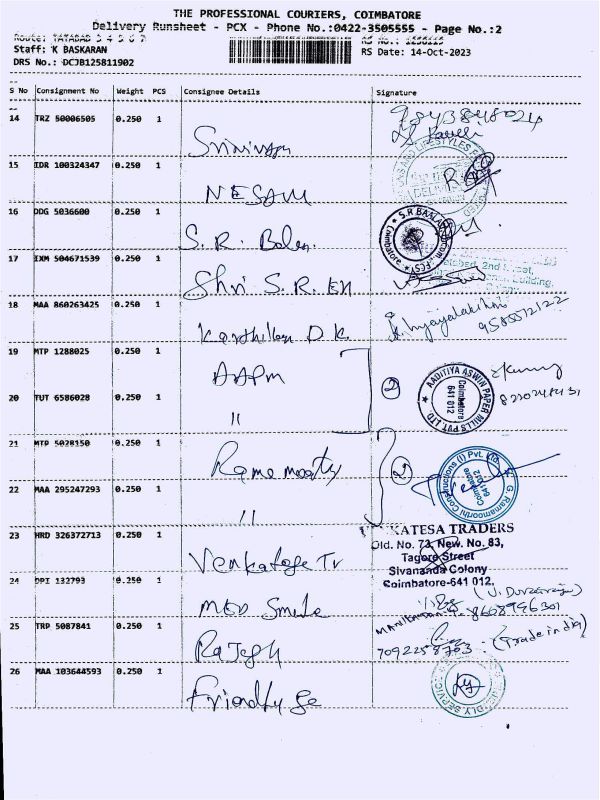 THE PROFESSIONAL COURIERS, COIMBATORE
Delivery Runsheet - PCX - Phone No.:0422-3505555 - Page No.:2
Route: TATABAD 3 4 5 6 7
Staff: K BASKARAN
RS Date: 14-Oct-2023
DRS No.: DCJB125811902
S No Consignment No Weight PCS Consignee Details Signature
14 TRZ 50006505 0.250 1
9843848024
15 IDR 100324347 0.250 1 NESAM
16 DDG 5036600 0.250 1 S. R. Balan
S.R BAALA
Coimbatore
17 IXM 504671539 0.250 1 Shri S. R. En
2nd
Building,
18 MAA 860263425 0.250 1 Karthikeyan D K
Vijayalakshmi
9585572122
19 MTP 1288025 0.250 1 AAPM
20 TUT 6586028 0.250 1 "
2
AADITIYA ASWIN PAPER MILLS PVT. LTD.
Coimbatore
641 012
21 MTP 5028150 0.250 1 Ramamoorty
22 MAA 295247293 0.250 1 "
2
G. Ramamoorthi Constructions (I) Pvt. Ltd.
Coimbatore
641012
23 HRD 326372713 0.250 1 Venkatesa Tr
KATESA TRADERS
Old. No. 73, New. No. 83,
Tagore Street
Sivananda Colony
Coimbatore-641 012.
24 OPI 132793 0.250 1 MED Smile
8668996301
25 TRP 5087841 0.250 1 Rajesh
7092258763 - (Tradeindia)
26 MAA 103644593 0.250 1 Friendly Se